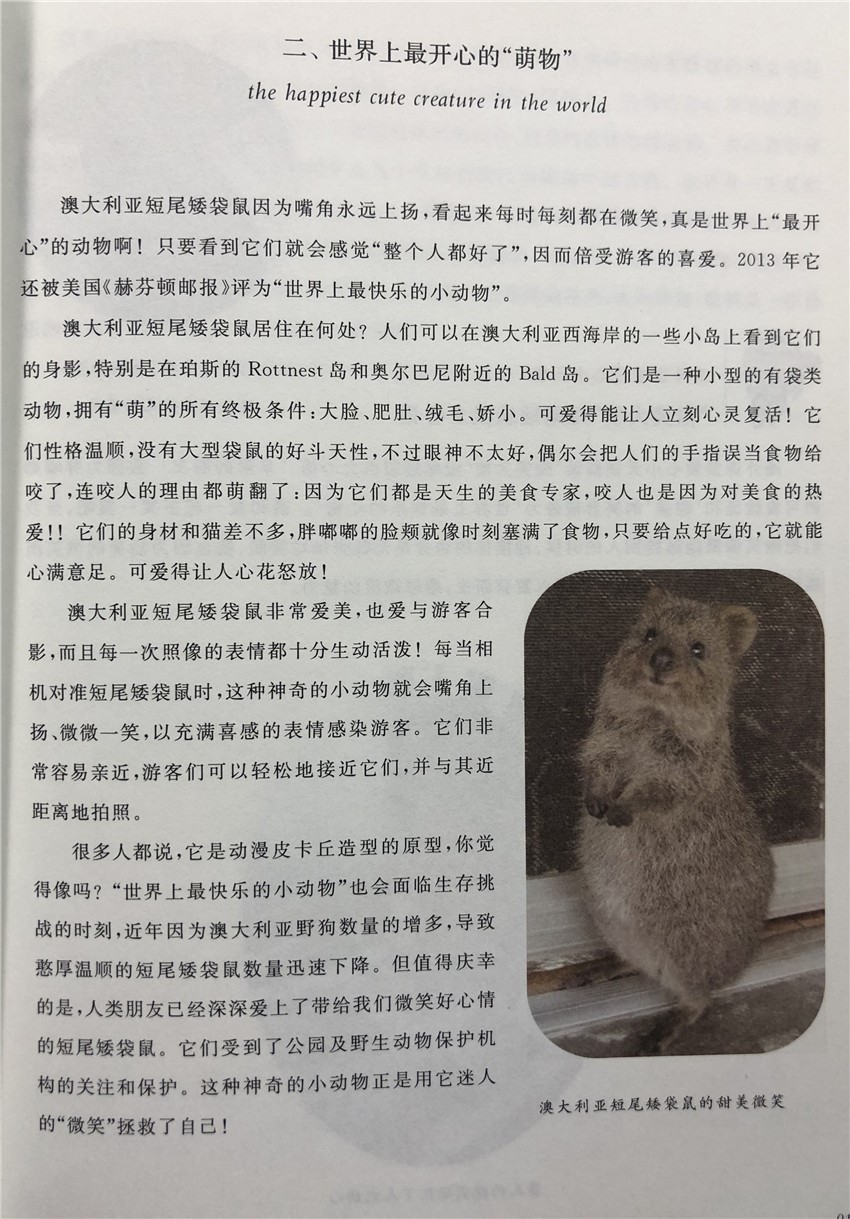 二、世界上最开心的“萌物”
the happiest cute creature in the world
澳大利亚短尾矮袋鼠因为嘴角永远上扬，看起来每时每刻都在微笑，真是世界上“最开
心”的动物啊！只要看到它们就会感觉“整个人都好了”，因而倍受游客的喜爱。2013 年它
还被美国《赫芬顿邮报》评为“世界上最快乐的小动物”。
澳大利亚短尾矮袋鼠居住在何处？人们可以在澳大利亚西海岸的一些小岛上看到它们
的身影，特别是在珀斯的 Rottnest 岛和奥尔巴尼附近的 Bald 岛。它们是一种小型的有袋类
动物，拥有“萌”的所有终极条件：大脸、肥肚、绒毛、娇小。可爱得能让人立刻心灵复活！它
们性格温顺，没有大型袋鼠的好斗天性，不过眼神不太好，偶尔会把人们的手指误当食物给
咬了，连咬人的理由都萌翻了：因为它们都是天生的美食专家，咬人也是因为对美食的热
爱！！它们的身材和猫差不多，胖嘟嘟的脸颊就像时刻塞满了食物，只要给点好吃的，它就能
心满意足。可爱得让人心花怒放！
澳大利亚短尾矮袋鼠非常爱美，也爱与游客合
影，而且每一次照像的表情都十分生动活泼！每当相
机对准短尾矮袋鼠时，这种神奇的小动物就会嘴角上
扬、微微一笑，以充满喜感的表情感染游客。它们非
常容易亲近，游客们可以轻松地接近它们，并与其近
距离地拍照。
很多人都说，它是动漫皮卡丘造型的原型，你觉
得像吗？“世界上最快乐的小动物”也会面临生存挑
战的时刻，近年因为澳大利亚野狗数量的增多，导致
憨厚温顺的短尾矮袋鼠数量迅速下降。但值得庆幸
的是，人类朋友已经深深爱上了带给我们微笑好心情
的短尾矮袋鼠。它们受到了公园及野生动物保护机
构的关注和保护。这种神奇的小动物正是用它迷人
的“微笑”拯救了自己！
澳大利亚短尾矮袋鼠的甜美微笑